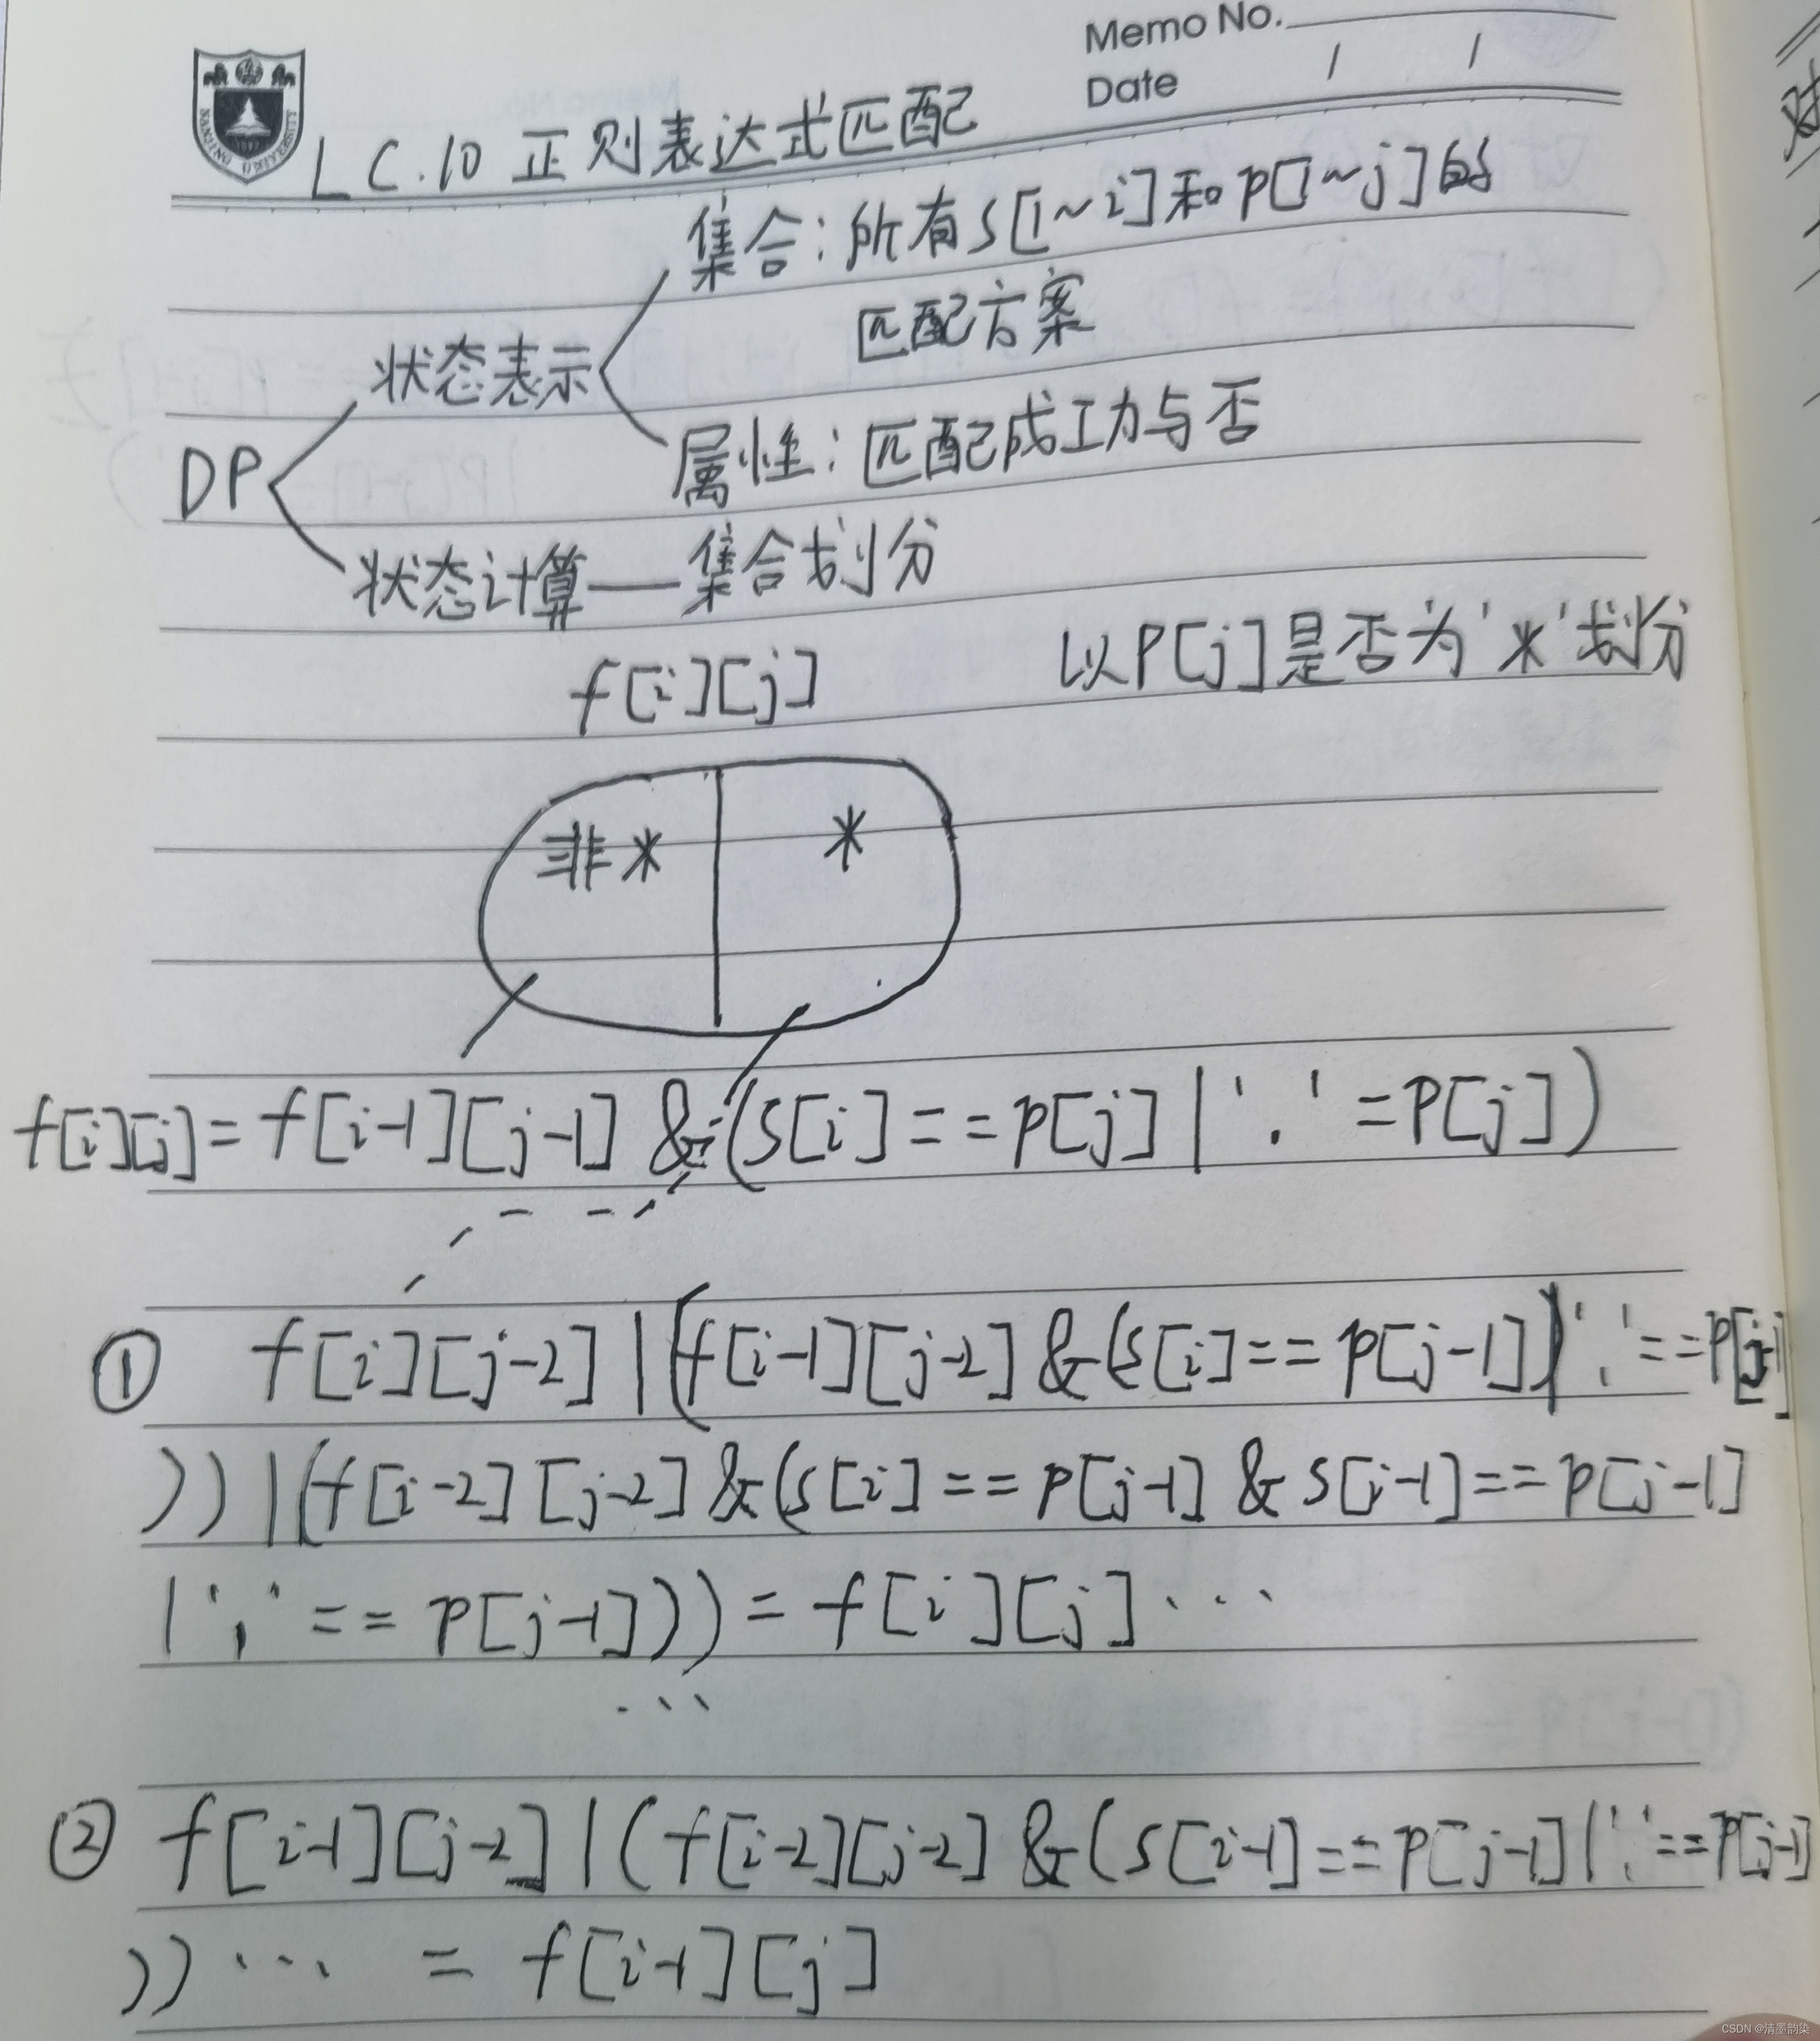 Memo No.
Date / /
NANJING UNIVERSITY
LC.10 正则表达式匹配
集合：所有s[1~i]和p[1~j]的
匹配方案
状态表示
属性：匹配成功与否
DP
状态计算——集合划分
f[i][j] 以P[j]是否为'*'划分
非* *
f[i][j]=f[i-1][j-1]&(s[i]==p[j]|'.'=P[j])
① f[i][j-2]|(f[i-1][j-2]&(s[i]==p[j-1]|'.'==p[j-1]
))|(f[i-2][j-2]&(s[i]==p[j-1]&s[j-1]==p[j-1]
|'.'==p[j-1]))=f[i][j]...
...
② f[i-1][j-2]|(f[i-2][j-2]&(s[i-1]==p[j-1]|'.'==p[j-1]
))... =f[i-1][j]
CSDN @清墨韵染